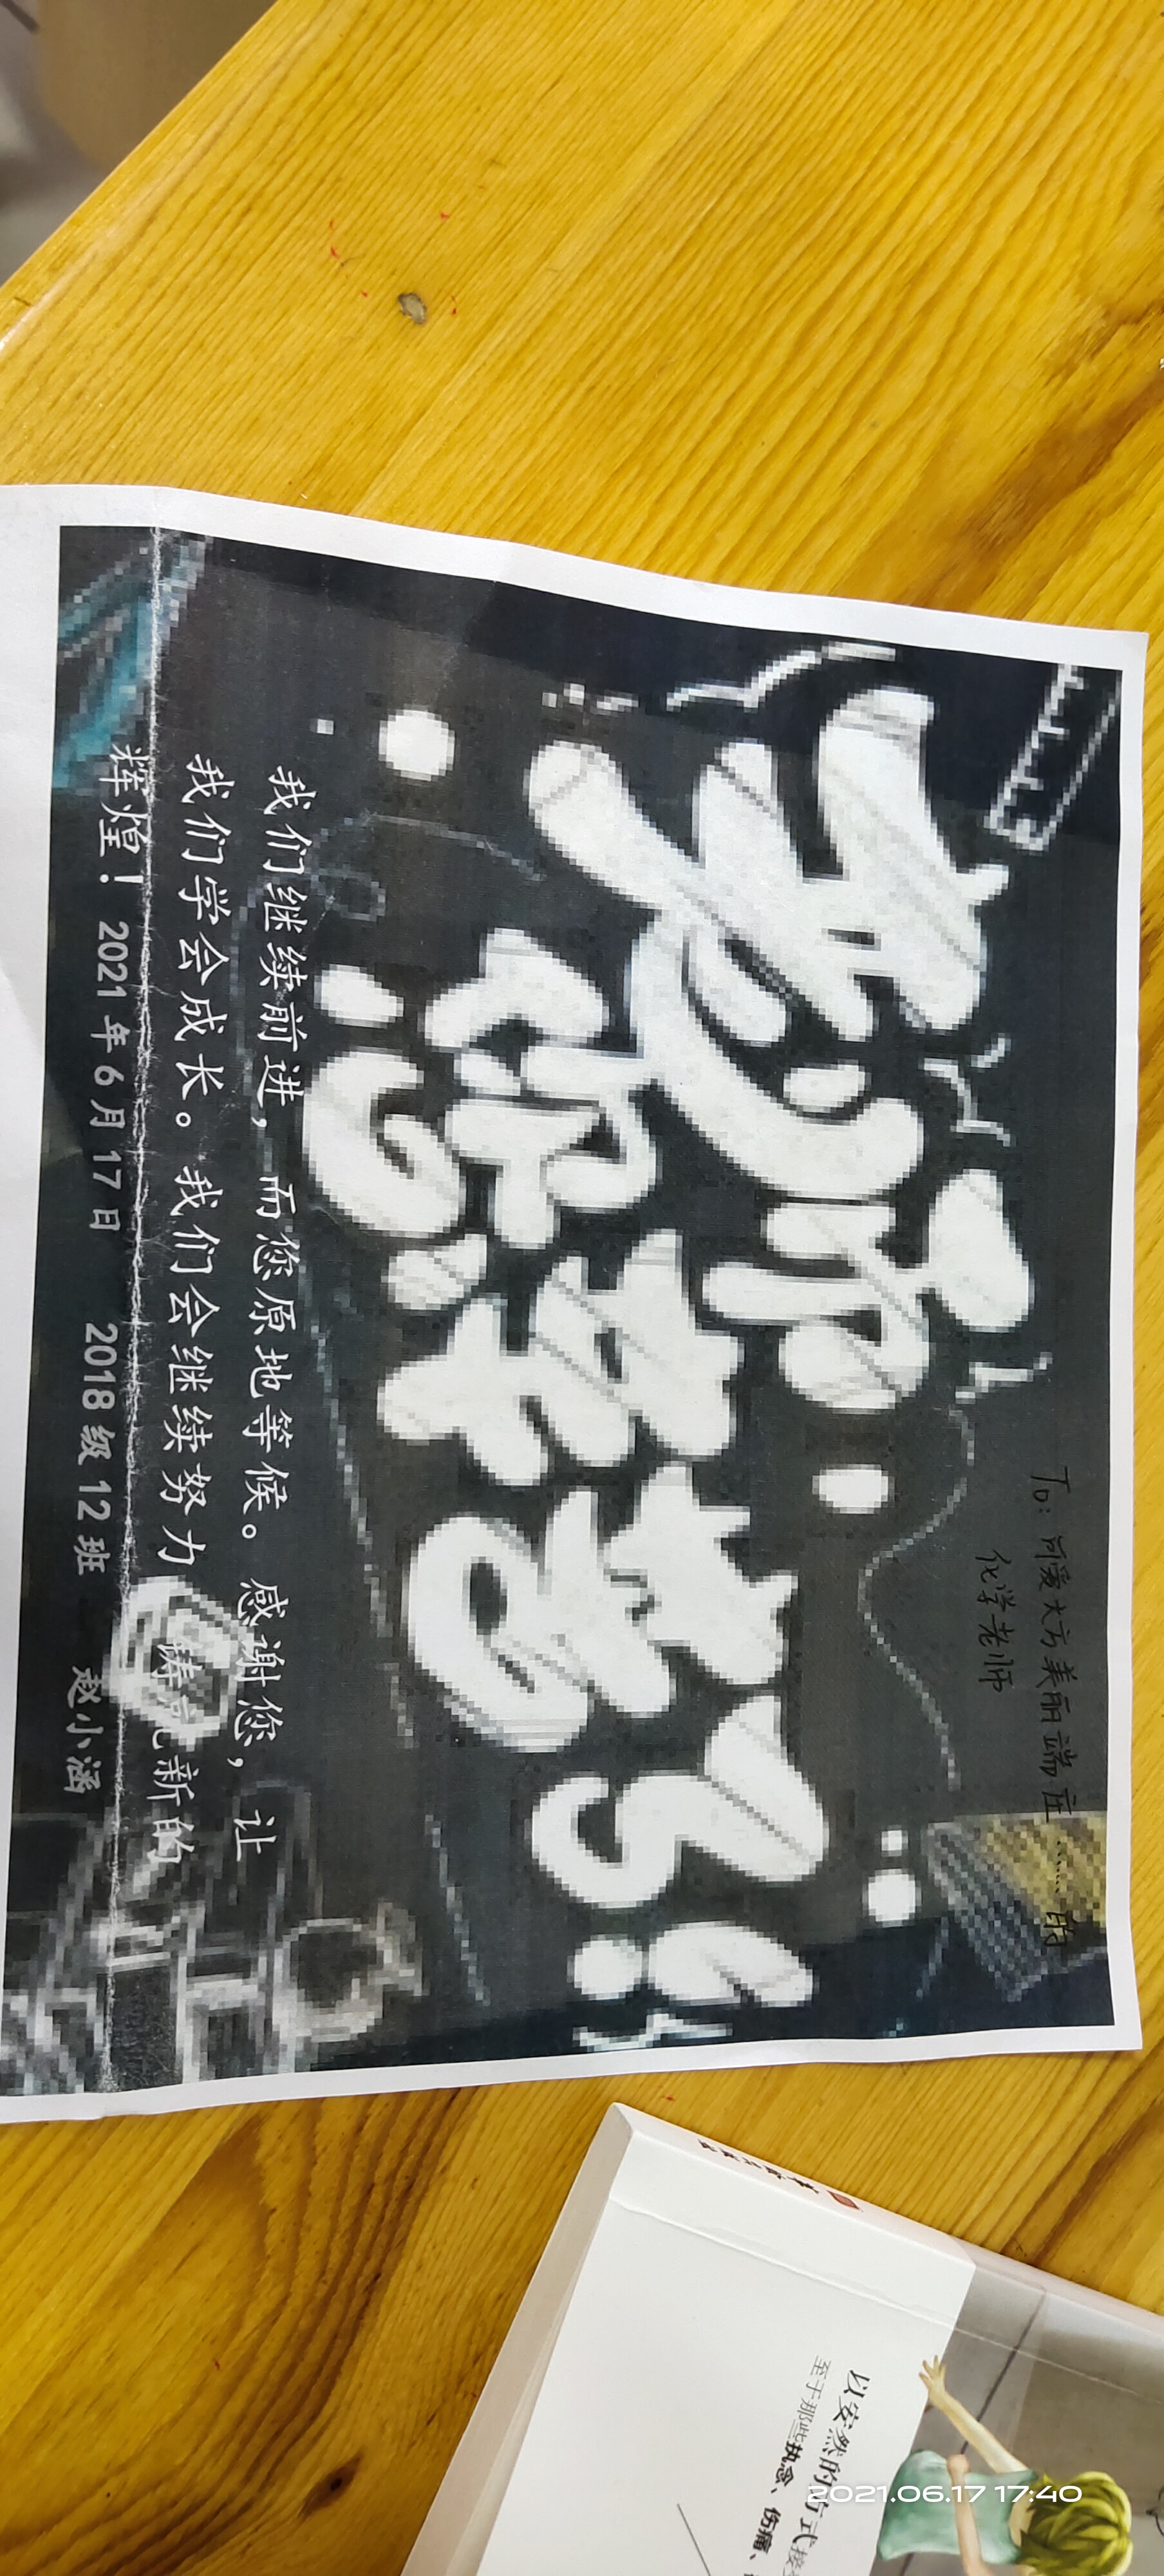 To: 可爱大方美丽端庄……的
化学老师
老师
您辛苦了!
我们继续前进，而您原地等候。感谢您，让
我们学会成长。我们会继续努力 铸就新的
辉煌！2021年6月17日 2018级12班 赵小涵
以安然的方式接
至于那些执念、伤痛、
2021.06.17 17:40